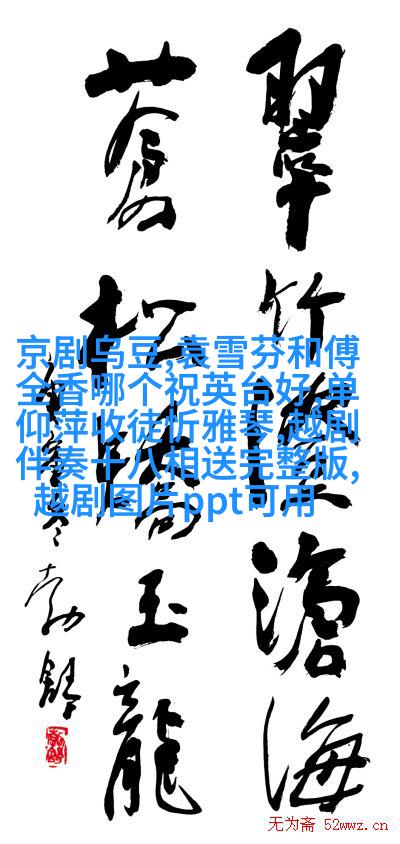 翠竹滄海
蒼松玉龍
勃舒
京剧乌豆,袁雪芬和傅
全香哪个祝英台好,单
仰萍收徒忻雅琴,越剧
伴奏十八相送完整版,
越剧图片ppt可用
无为斋 52wwz.cn